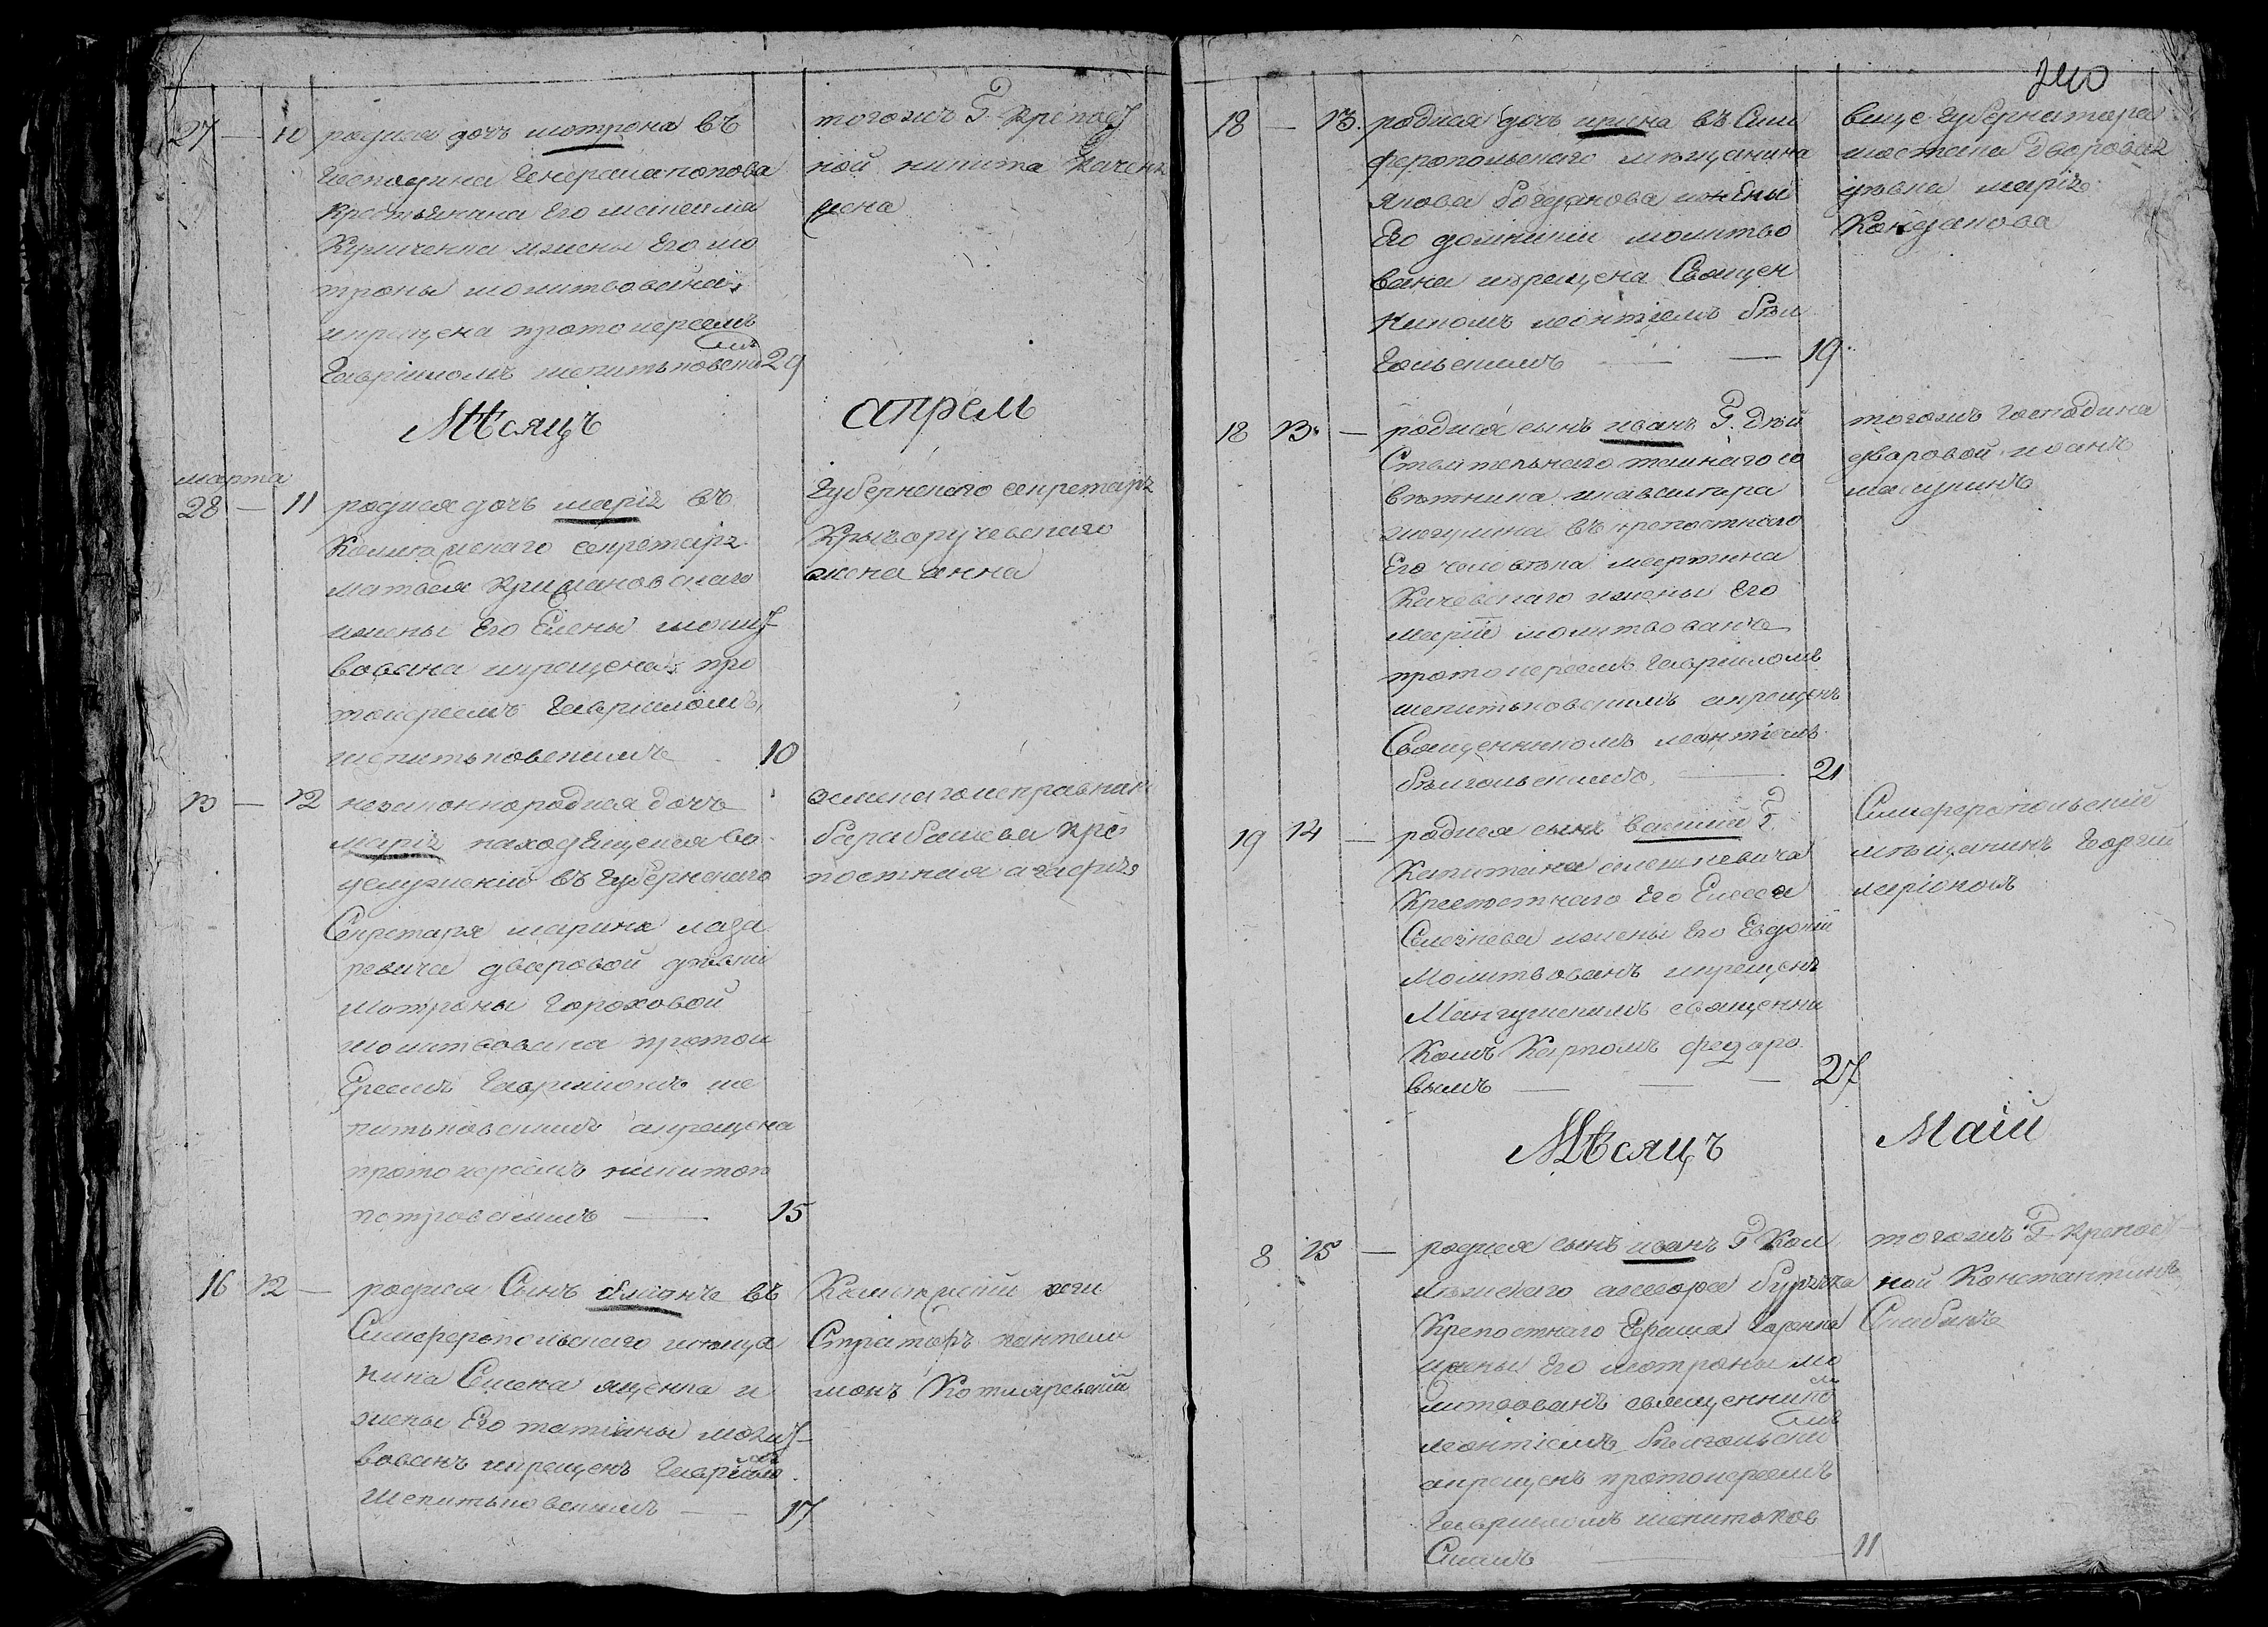 27 — 10 родися дочь мотрона въ
Господина Генерала попова
крестьянина Его
Кириченка ижены Его мо
троны молитвована
икрещена протоиереемъ
Гавріиломъ шепитьковскимъ 29
тогожъ Г. крепост
ной никита

Мѣсяцъ апрель
марта
28 — 11 родися дочь марія въ
Колежскаго секретаря
матвея
ижены Его Елены молит
вована икрещена про
тоиереемъ Гавріиломъ
шепитьковскимъ 10
Губернскаго секретаря
Крыворучевскаго
жена анна
13 — 12 незаконнородися дочь
марія находящейся во
услужении въ Губернскаго
Секретаря марина лаза
ревича дворовой дѣвки
мотроны Гороховой
молитвована протои
Ереемъ Гавріиломъ ше
питьковскимъ акрещена
протоиереемъ никитою
петровскимъ — 15
земскаго исправника
барабашева кре
постная агафия
16 12 — родися Сынъ въ
Симферопольскаго мещя
нина Семена яценка и
жены Его татияны молит
вованъ икрещенъ Гавріиломъ
Шепитьковскимъ — 17
Колежскій реги
Стратеръ пантели
монъ Котляревскій
240
18 — 13. родися дочь ирина въ Сим
феропольскаго мещанина
якова богданова ижены
Его домникии молитво
вана икрещена Священ
Никомъ леонтиемъ бѣли
Гольскимъ — 19.
вице Губернатора
шостака дворовая
дѣвка марія
18 13. — родися сынъ иванъ Г. Дѣй
Ствительнаго тайнаго со
вѣтника икавалера
въ крепостнаго
Его человѣка мартина
Качевскаго ижены Его
маріи молитвованъ
протоиереемъ Гавріиломъ
шепитьковскимъ акрещенъ
Священникомъ леонтиемъ
бѣлигольскимъ. — 21
тогожъ Господина
дворовой иванъ
19 14 — родися сынъ василій Г.
Капитана
Крепостнаго Его Елесея
Селезнева ижены Его Евдокіи
Молитвованъ икрещенъ
Мангушскимъ священни
Комъ Карпомъ федоро
вымъ — — — 27
Симферопольскій
мѣщанинъ Георгій

Мѣсяцъ Маій
8 15 — родися сынъ иванъ Г Кол
лѣжскаго асесора
Крепостнаго Ефима
ижены Его мотроны мо
литвованъ священникомъ
леонтиемъ бѣлигольскимъ
акрещенъ протоиереемъ
Гавріиломъ шепитьков
Скимъ — 11
тогожъ Г крепост
ной Константинъ